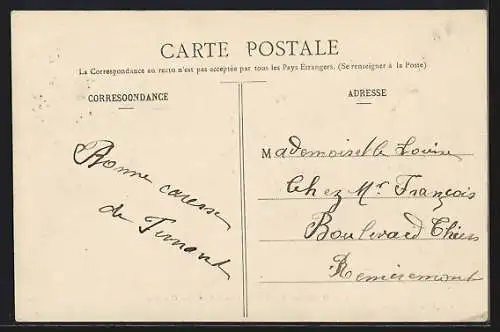 CARTE POSTALE
La Correspondance au recto n'est pas acceptée par tous les Pays Etrangers. (Se renseigner à la Poste)
CORRESOONDANCE
Bonne caresse
de
ADRESSE
Mademoiselle Louise
Chez Mr François
Boulevard Thiers
Remiremont